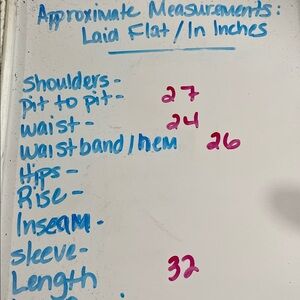 Approximate Measurements:
Laid Flat/In Inches
Shoulders-
Pit to pit- 27
waist- 24
waistband/hem 26
Hips-
Rise-
Inseam-
sleeve-
Length 32